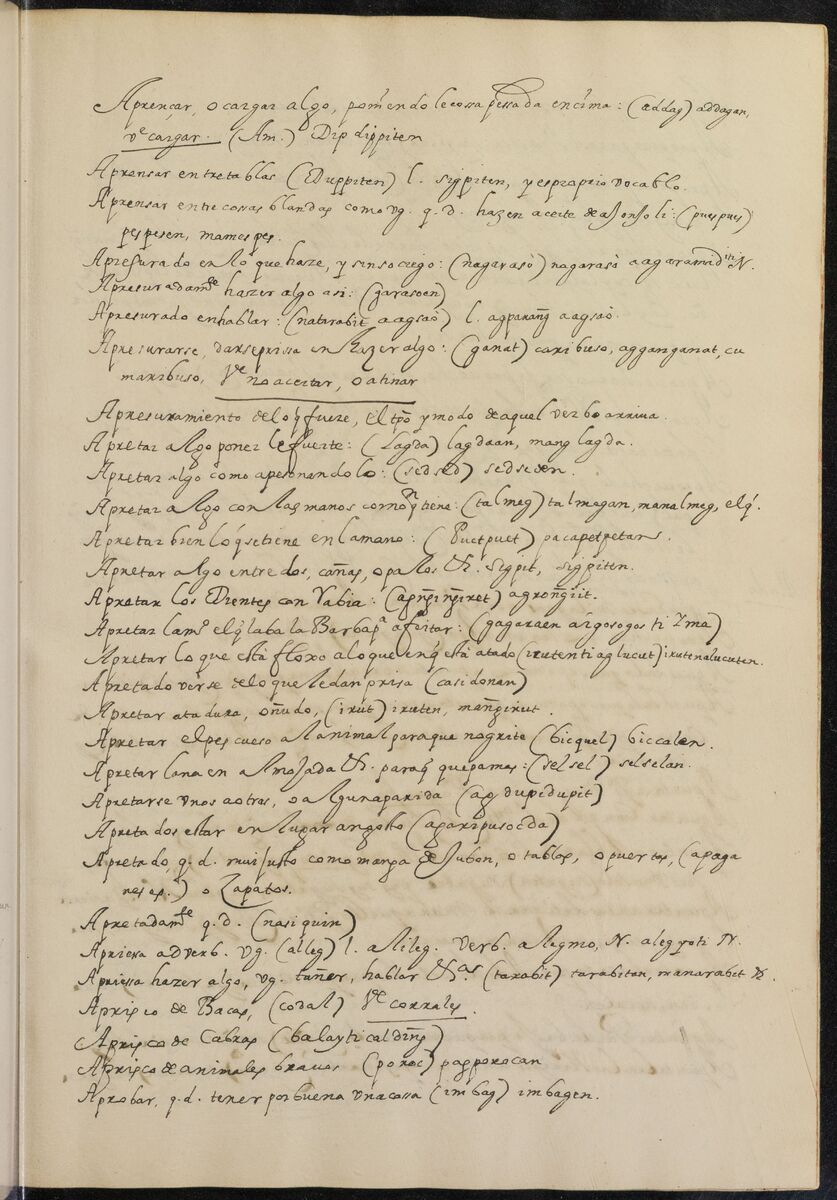 Aprençar, o cargar algo, poniendole cossa pessada encima: (addag) addagan,
vᵉ cargar. (Am.) Dip dippiten
Aprensar entretablas (Duppiten) l. sigpiten, y es proprio vocablo.
Aprensar entre cossas blandas como vg. q. d. hazen aceite de ajonjoli: (puespues)
pespesen, mamespes.
Apresurado en lo que haze, y sin sociego: (nagarasò) nagarasò aagaramid iti N.
Apresuradamᵗᵉ hazer algo asi: (garasoen)
Apresurado en hablar: (natarabit aagsaò) l. agparañg aagsaò.
Apresurarse, darse prissa en hazer algo: (ganat) caribuso, agganganat, cu
maribuso, vᵉ no acertar, o atinar
Apresuramiento de lo q̃ fuere, el tpõ y modo de aquel verbo arriva.
Apretar algo poner le fuerte: (Lagda) lagdaan, mang lagda.
Apretar algo como apesonandolo: (sedsed) sedseden.
Apretar algo con las manos como q̃ tiene: (talmeg) talmegan, manalmeg, el q̃.
Apretar bien lo q̃ se tiene en la mano: (Puetpuet) pacapetpetans.
Apretar algo entre dos, cañas, o palos &. Sigpit, sigpiten.
Apretar los Dientes con Rabia: (apñgiñgiret) agrongiit.
Apretar lamᵒ el q̃ laba la Barba pᵃ afeitar: (gagaraen agosogos ti Ima)
Apretar lo que està floxo a lo que en q̃ està atado (iruten ti aglucut) iruten a lucuten.
Apretado verse de lo que le dan prisa (casidonan)
Apretar atadura, o ñudo, (irut) iruten, mañgirut.
Apretar el pescueso al animal para que no grite (bicquel) biccalen.
Apretar lana en almojada &. para q̃ quepa mas: (selsel) selselan.
Apretarse vnos a otros, o alguna parida (ag dupidupit)
Apretados estar en lugar angosto (agaripusocda)
Apretado, q. d. mui justo como manga de Jubon, o tablas, o puertas, (apaga
neses.) o Zapatos.
Apretadamᵗᵉ q. d. (nasiquin)
Apriesa adverb. vg. (alleg) l. alileg. verb. alegmo, N. alegyoti N.
Apriessa hazer algo, vg. tañer, hablar &ᵃˢ (tarabit) tarabitan, manarabit &.
Aprisco de Bacas, (codal) vᵉ corrales.
Aprisco de Cabras (balay ti caldiñg)
Aprisco de animales bravos (poroc) pagporocan
Aprobar, q. d. tener por buena vna cossa (imbag) imbagen.